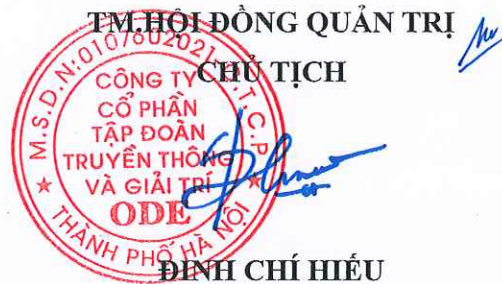 TM.HỘI ĐỒNG QUẢN TRỊ
CHỦ TỊCH
CÔNG TY
CỔ PHẦN
TẬP ĐOÀN
TRUYỀN THÔNG
VÀ GIẢI TRÍ
ODE
THÀNH PHỐ HÀ NỘI
ĐINH CHÍ HIẾU